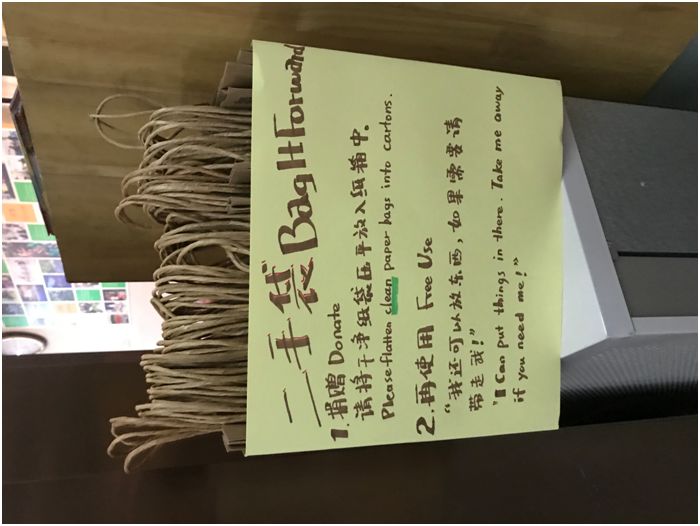 二手袋 Bag It Forward
1. 捐赠 Donate
请将干净纸袋压平放入纸箱中。
Please flatten clean paper bags into cartons.
2. 再使用 Free Use
“我还可以放东西，如果需要请
带走我！”
"I Can put things in there. Take me away
if you need me!"